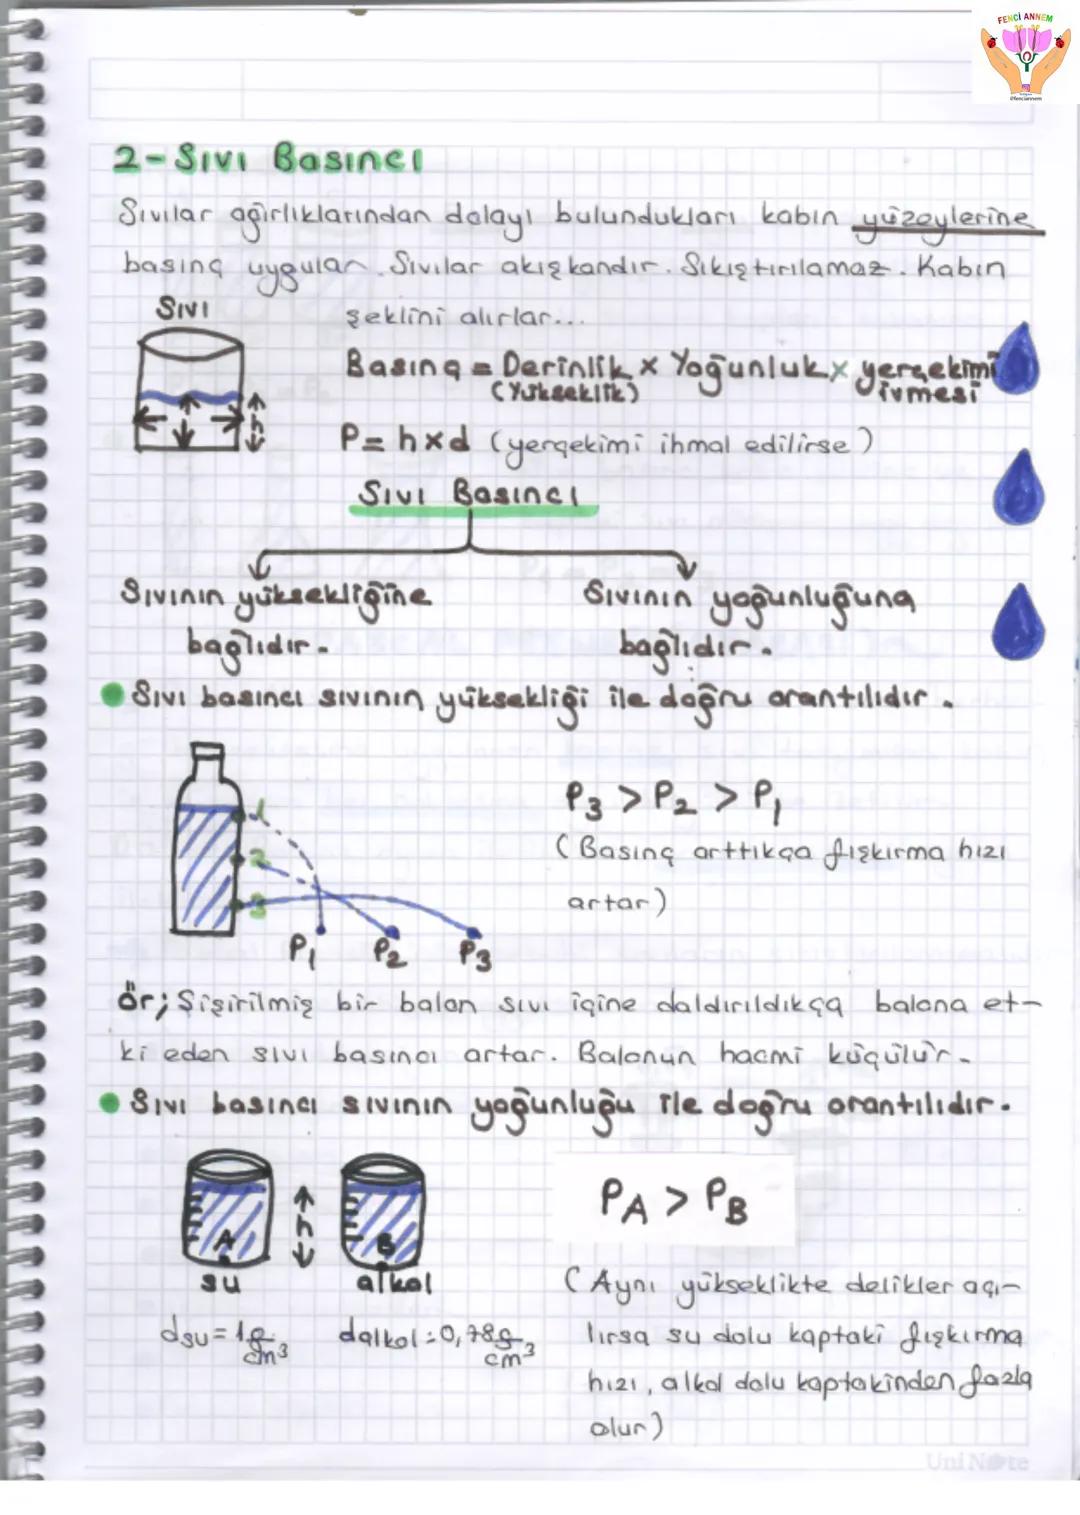 FENCİ ANNEM
@fenciannem
2-Sıvı Basıncı
Sıvılar ağırlıklarından dolayı bulundukları kabın yüzeylerine
basınç uygular. Sıvılar akışkandır. Sıkıştırılamaz. Kabın
şeklini alırlar...
Sıvı
h
Basınç = Derinlik x Yoğunluk x yerçekimi
(Yükseklik) ivmesi
P = h x d (yerçekimi ihmal edilirse)
Sıvı Basıncı
Sıvının yüksekliğine
bağlıdır.
Sıvının yoğunluğuna
bağlıdır.
Sıvı basıncı sıvının yüksekliği ile doğru orantılıdır.
1
2
3
P1 P2 P3
P3 > P2 > P1
(Basınç arttıkça fışkırma hızı
artar)
ör; Şişirilmiş bir balon sıvı içine daldırıldıkça balona et-
ki eden sıvı basıncı artar. Balonun hacmi küçülür.
Sıvı basıncı sıvının yoğunluğu ile doğru orantılıdır.
A
h
B
su
alkol
dsu = 1 g/cm³
dalkol = 0,78 g/cm³
PA > PB
(Aynı yükseklikte delikler açı-
lırsa su dolu kaptaki fışkırma
hızı, alkol dolu kaptakinden fazla
olur)
UniNote